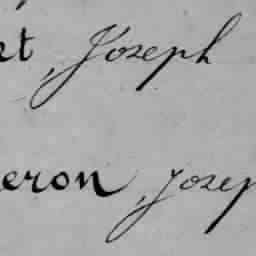 rt, Joseph
eron, Josep